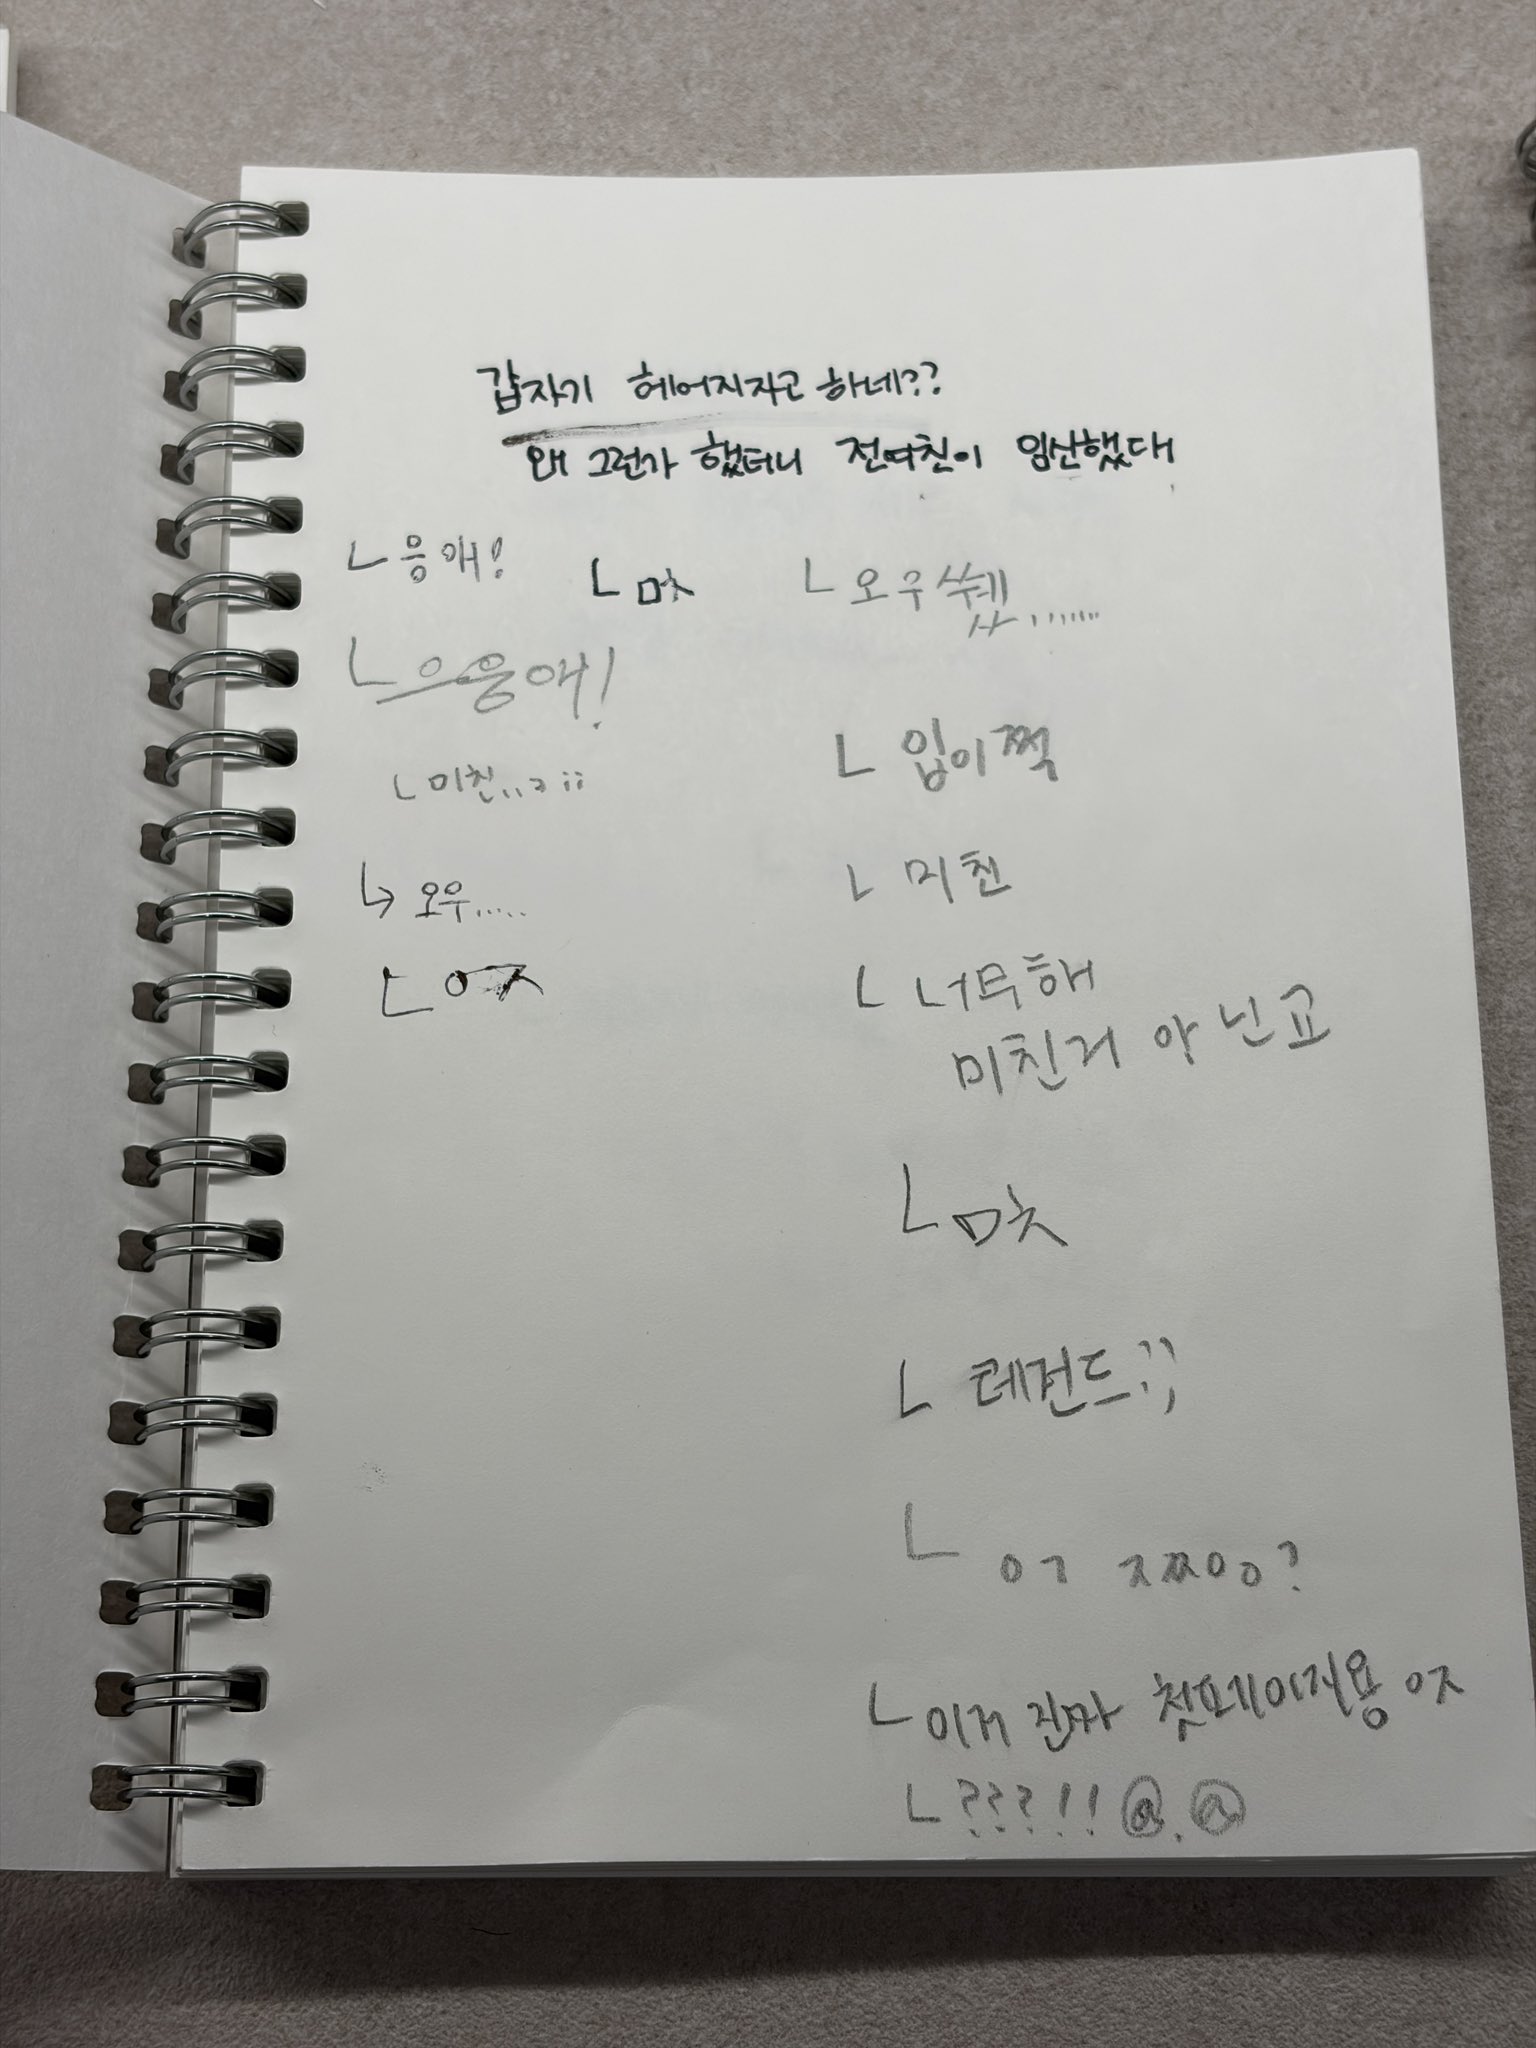 갑자기 헤어지자고 하네??
왜 그런가 했더니 전여친이 임신했대
ㄴ응애!
ㄴㅁㅊ
ㄴ오우쉣.......
ㄴ으응애!
ㄴ입이쩍
ㄴ미친..ㄱ;;
ㄴ미친
↳오우.....
ㄴㅇㅈ
ㄴ너무해
미친거 아닌교
ㄴㅁㅊ
ㄴ레전드;;
ㄴㅇㄱ ㅈㅉㅇㅇ?
ㄴ이거 진짜 첫페이지용 ㅇㅈ
ㄴ???!!@.@